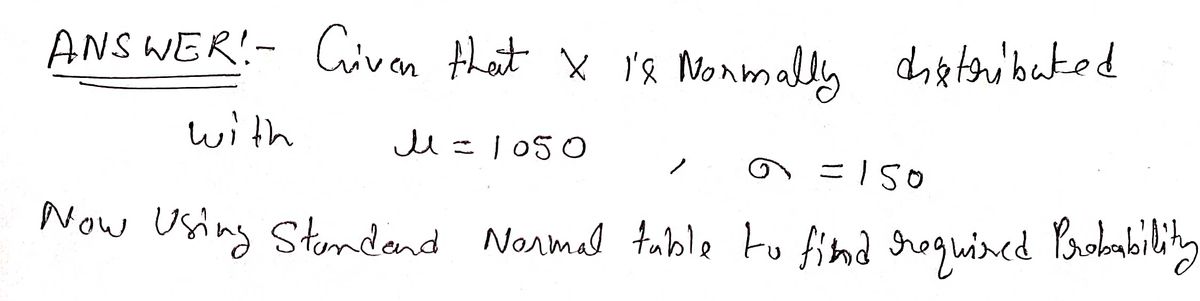 ANSWER!- Given that X is Normally distributed
with μ = 1050 , σ = 150
Now Using Standard Normal table to find required Probability